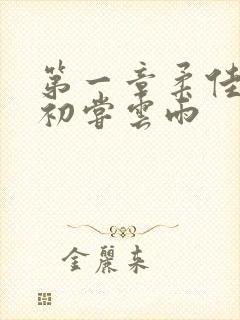 第一章柔佳
初嘗雲雨
金麗来